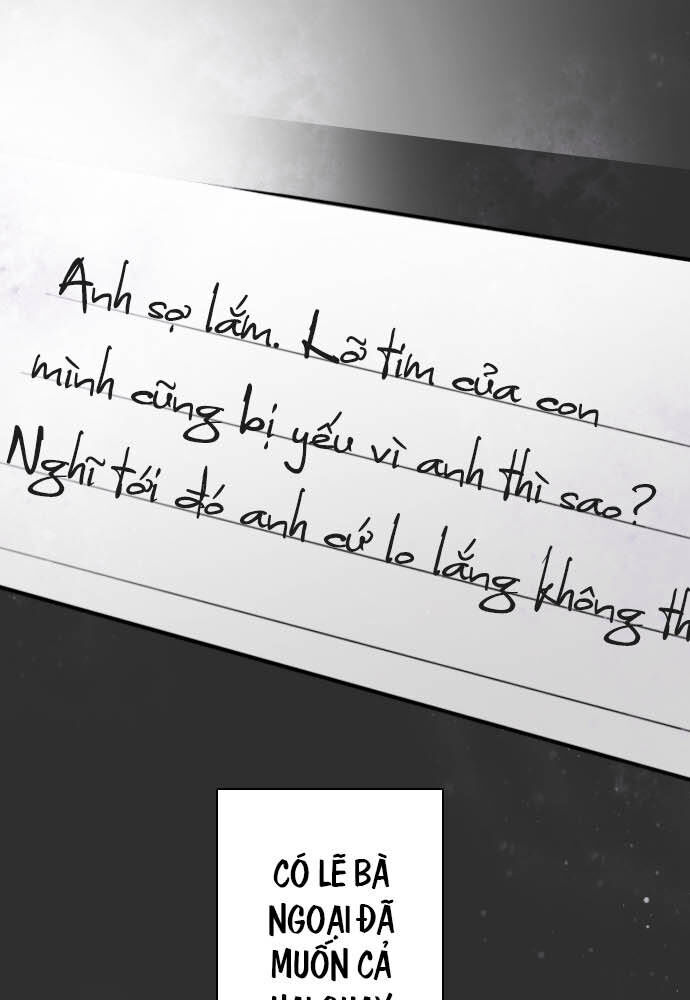 Anh sợ lắm. Lỡ tim của con
mình cũng bị yếu vì anh thì sao?
Nghĩ tới đó anh cứ lo lắng không th
CÓ LẼ BÀ
NGOẠI ĐÃ
MUỐN CẢ